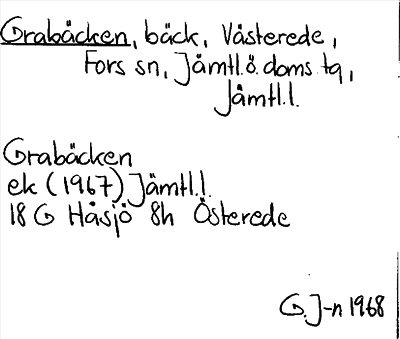 Grabäcken, bäck, Västerede,
Fors sn, Jämtl.ö. doms. tg,
Jämtl.l.
Grabäcken
ek (1967) Jämtl.l.
18 G Håsjö 8h Österede
G. J-n 1968